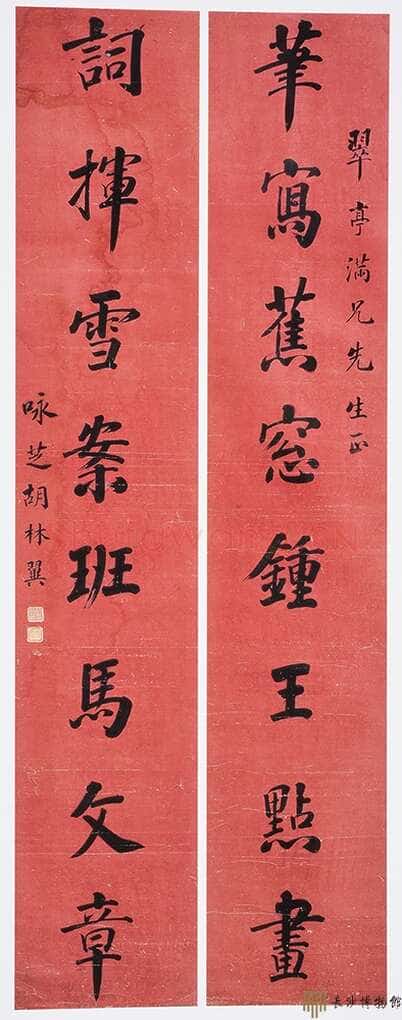 翠亭满兄先生正
筆寫蕉窓鍾王點畫
詞揮雪案班馬文章
咏芝胡林翼
長沙博物館